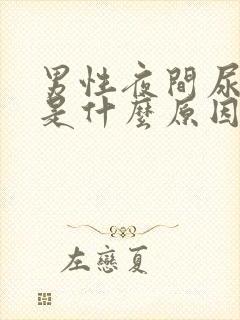 男性夜間尿
是什麼原因
左戀夏